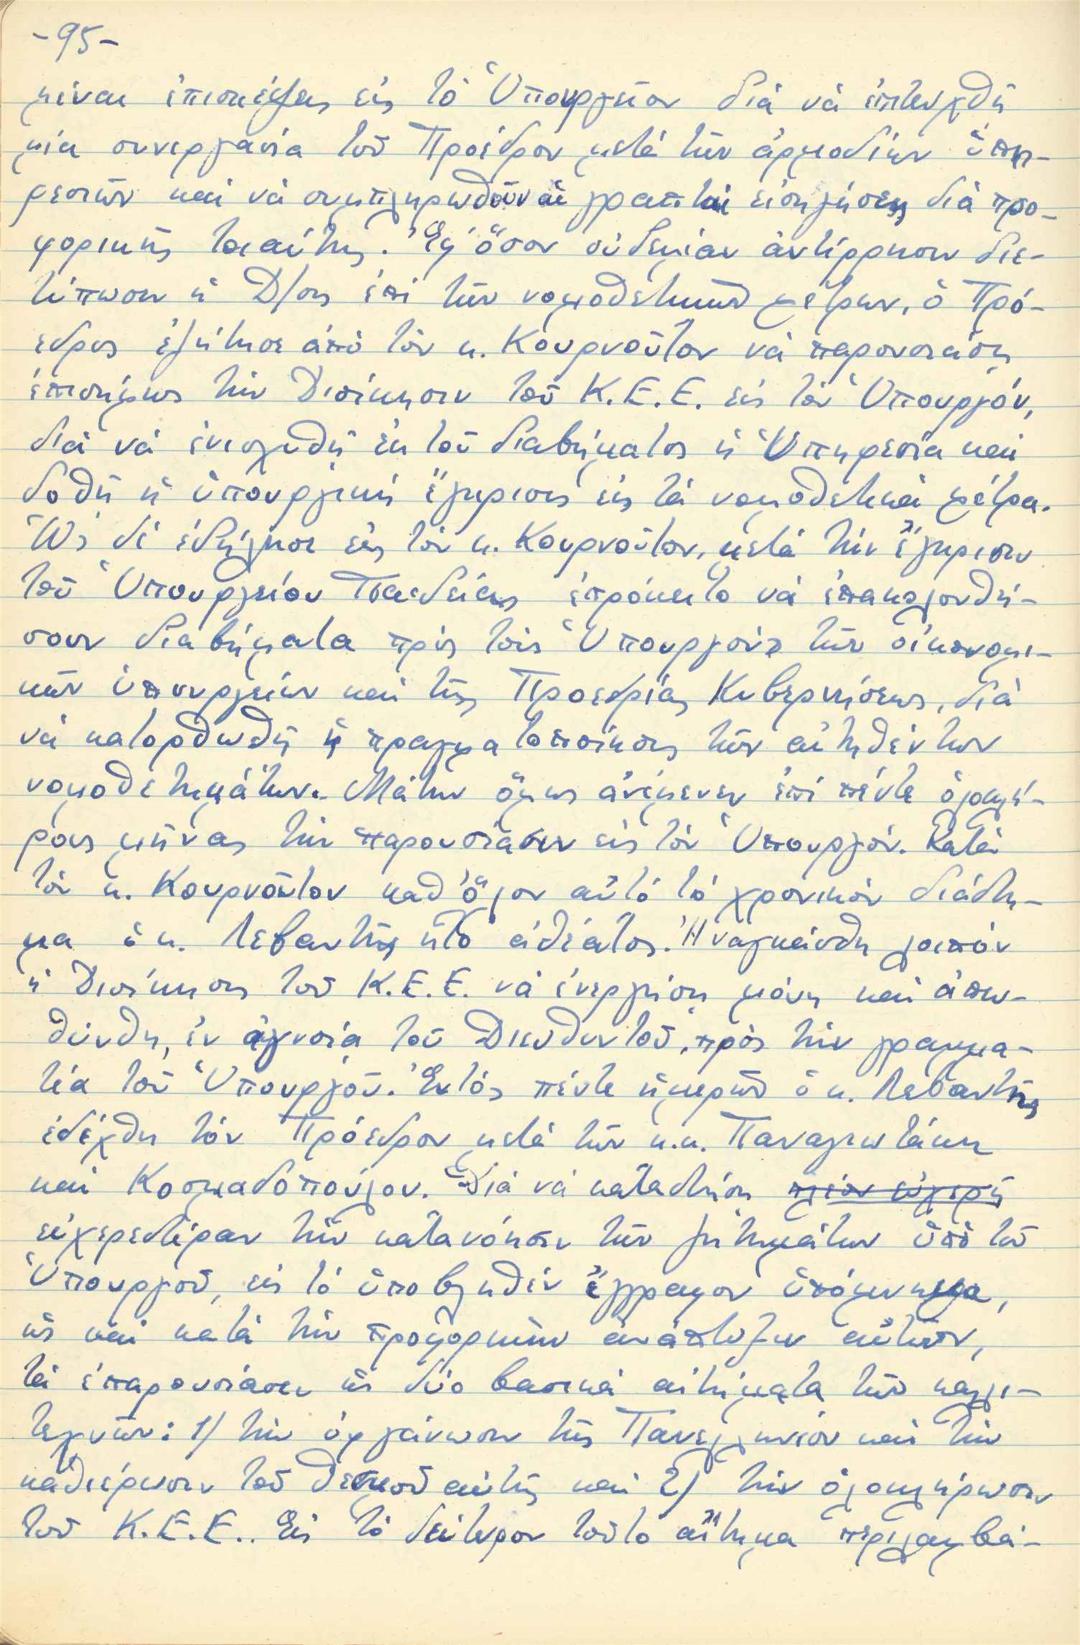 -95-
μέναι ἐπισκέψεις εἰς τὸ Ὑπουργεῖον διὰ νὰ ἐπιτευχθῇ
μία συνεργασία τοῦ Προέδρου μετὰ τῶν ἁρμοδίων ὑπη-
ρεσιῶν καὶ νὰ συμπληρωθοῦν αἱ γραπταὶ εἰσηγήσεις διὰ προ-
φορικῆς τοιαύτης. Ἐφ' ὅσον οὐδεμίαν ἀντίρρησιν διε-
τύπωσεν ἡ Δ/σις ἐπὶ τῶν νομοθετικῶν μέτρων, ὁ Πρό-
εδρος ἐζήτησε ἀπὸ τὸν κ. Κουρνοῦτον νὰ παρουσιάσῃ
ἐπισήμως τὴν Διοίκησιν τοῦ Κ.Ε.Ε. εἰς τὸν Ὑπουργόν,
διὰ νὰ ἐνισχυθῇ ἐκ τοῦ διαβήματος ἡ Ὑπηρεσία καὶ
δοθῇ ἡ ὑπουργικὴ ἔγκρισις εἰς τὰ νομοθετικὰ μέτρα.
Ὡς δὲ ἐδήλωσε εἰς τὸν κ. Κουρνοῦτον, μετὰ τὴν ἔγκρισιν
τοῦ Ὑπουργείου Παιδείας ἐπρόκειτο νὰ ἐπακολουθή-
σουν διαβήματα πρὸς τοὺς Ὑπουργοὺς τῶν οἰκονομι-
κῶν ὑπουργείων καὶ τῆς Προεδρίας Κυβερνήσεως, διὰ
νὰ κατορθωθῇ ἡ πραγματοποίησις τῶν αἰτηθέντων
νομοθετημάτων. Μάτην ὅμως ἀνέμενεν ἐπὶ πέντε ὁλοκλή-
ρους μῆνας τὴν παρουσίασιν εἰς τὸν Ὑπουργόν. Κατὰ
τὸν κ. Κουρνοῦτον καθ' ὅλον αὐτὸ τὸ χρονικὸν διάστη-
μα ὁ κ. Λεβαντῆς ἦτο ἀθέατος. Ἠναγκάσθη λοιπὸν
ἡ Διοίκησις τοῦ Κ.Ε.Ε. νὰ ἐνεργήσῃ μόνη καὶ ἀπευ-
θύνθη, ἐν ἀγνοίᾳ τοῦ Διευθυντοῦ, πρὸς τὴν γραμμα-
τέα τοῦ Ὑπουργοῦ. Ἐντὸς πέντε ἡμερῶν ὁ κ. Λεβαντῆς
ἐδέχθη τὸν Πρόεδρον μετὰ τῶν κ.κ. Παναγιωτάκη
καὶ Κοσμαδοπούλου. Διὰ νὰ καταστήσῃ πλέον εὐχερῆ
εὐχερεστέραν τὴν κατανόησιν τῶν ζητημάτων ὑπὸ τοῦ
Ὑπουργοῦ, εἰς τὸ ὑποβληθὲν ἔγγραφον ὑπόμνημα,
ὡς καὶ κατὰ τὴν προφορικὴν ἀνάπτυξιν αὐτῶν,
τὰ ἐπαρουσίασεν ὡς δύο βασικὰ αἰτήματα τῶν καλλι-
τεχνῶν: 1) τὴν ὀργάνωσιν τῆς Πανελληνίου καὶ τὴν
καθιέρωσιν τοῦ θεσμοῦ αὐτῆς καὶ 2) τὴν ὁλοκλήρωσιν
τοῦ Κ.Ε.Ε.. Εἰς τὸ δεύτερον τοῦτο αἴτημα περιλαμβά-